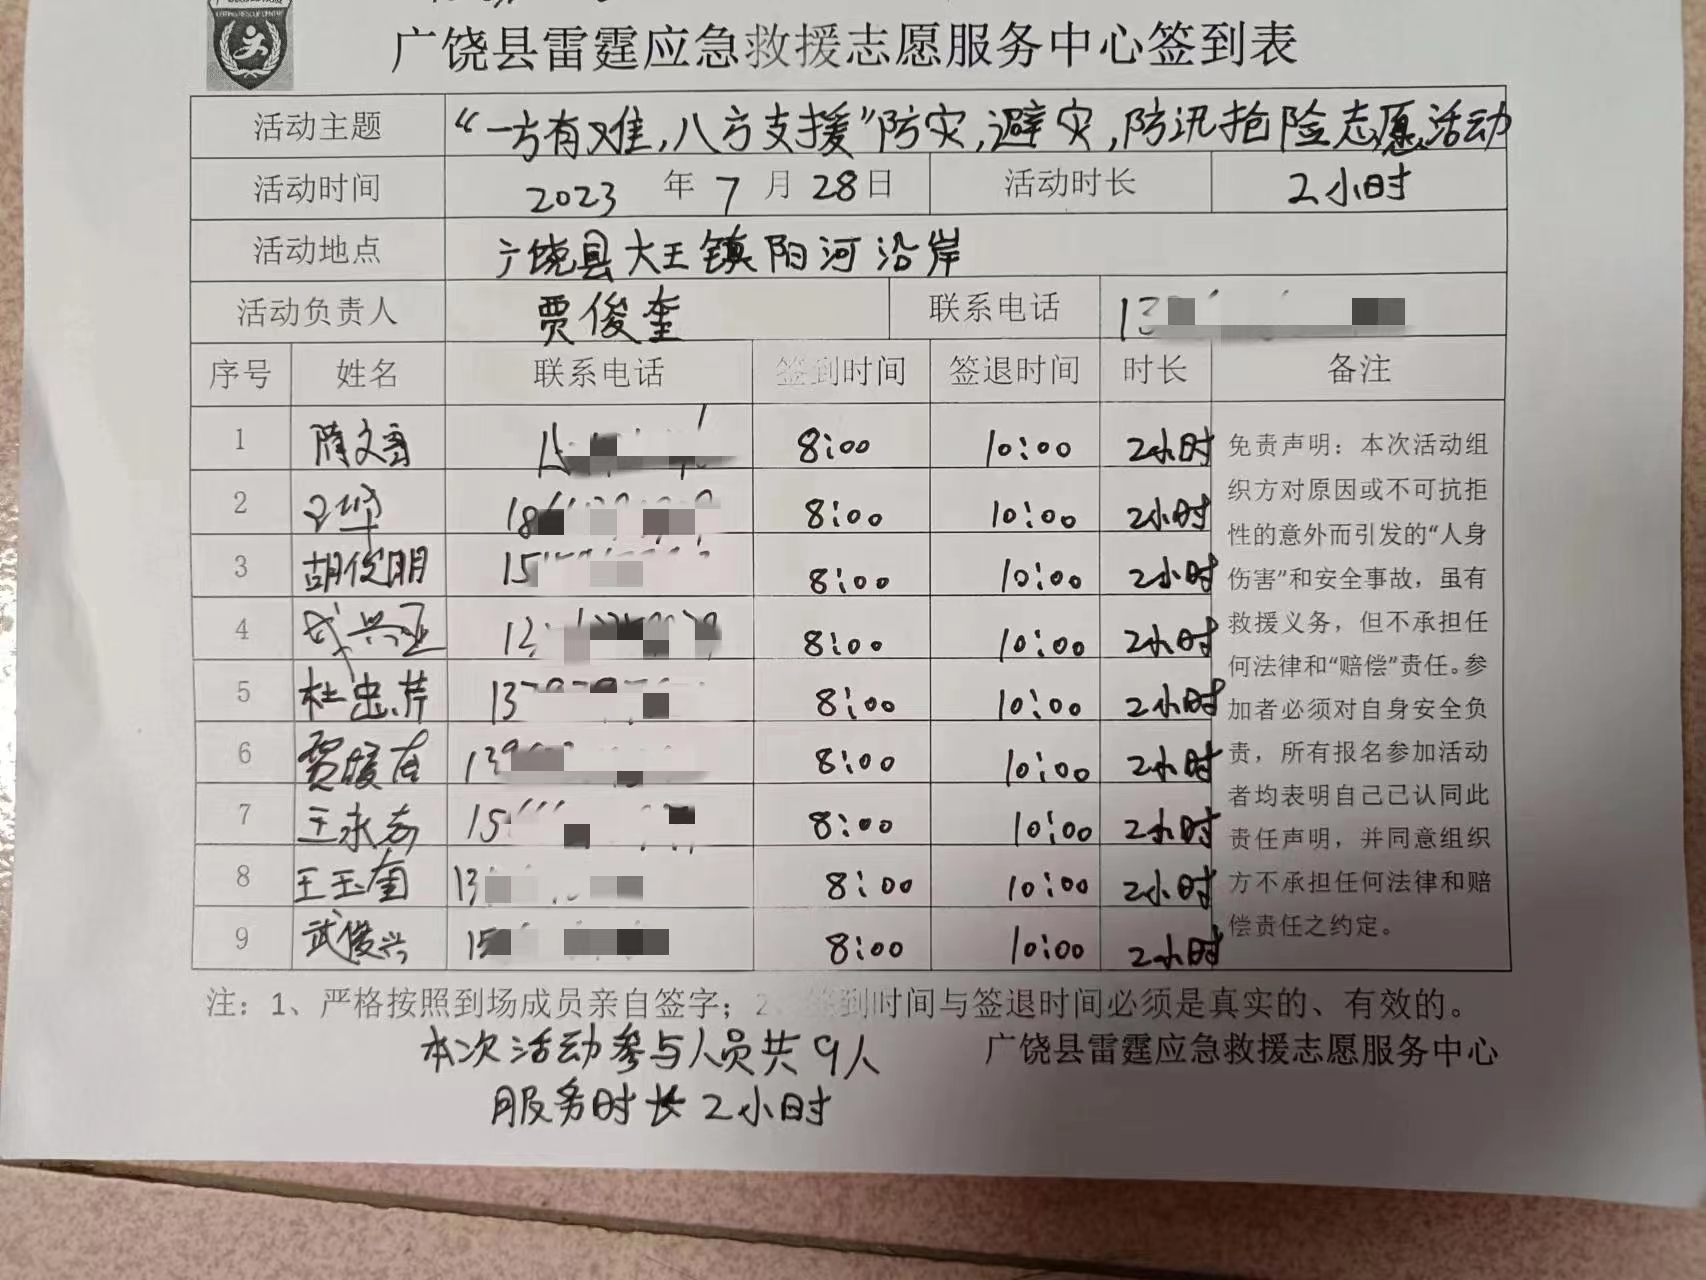 广饶县雷霆应急救援志愿服务中心签到表
活动主题 “一方有难,八方支援”防灾,避灾,防汛抢险志愿活动
活动时间 2023 年 7 月 28 日 活动时长 2小时
活动地点 广饶县大王镇阳河沿岸
活动负责人 贾俊奎 联系电话 13
序号 姓名 联系电话 签到时间 签退时间 时长 备注
1 隋文 15 8:00 10:00 2小时
2 18 8:00 10:00 2小时
3 胡俊明 15 8:00 10:00 2小时
4 兴亚 8:00 10:00 2小时
5 杜忠芹 13 8:00 10:00 2小时
6 贾 13 8:00 10:00 2小时
7 王永志 15 8:00 10:00 2小时
8 王玉奎 13 8:00 10:00 2小时
9 武俊兴 15 8:00 10:00 2小时
免责声明：本次活动组
织方对原因或不可抗拒
性的意外而引发的“人身
伤害”和安全事故，虽有
救援义务，但不承担任
何法律和“赔偿”责任。参
加者必须对自身安全负
责，所有报名参加活动
者均表明自己己认同此
责任声明，并同意组织
方不承担任何法律和赔
偿责任之约定。
注：1、严格按照到场成员亲自签字；2、签到时间与签退时间必须是真实的、有效的。
本次活动参与人员共9人
广饶县雷霆应急救援志愿服务中心
服务时长2小时